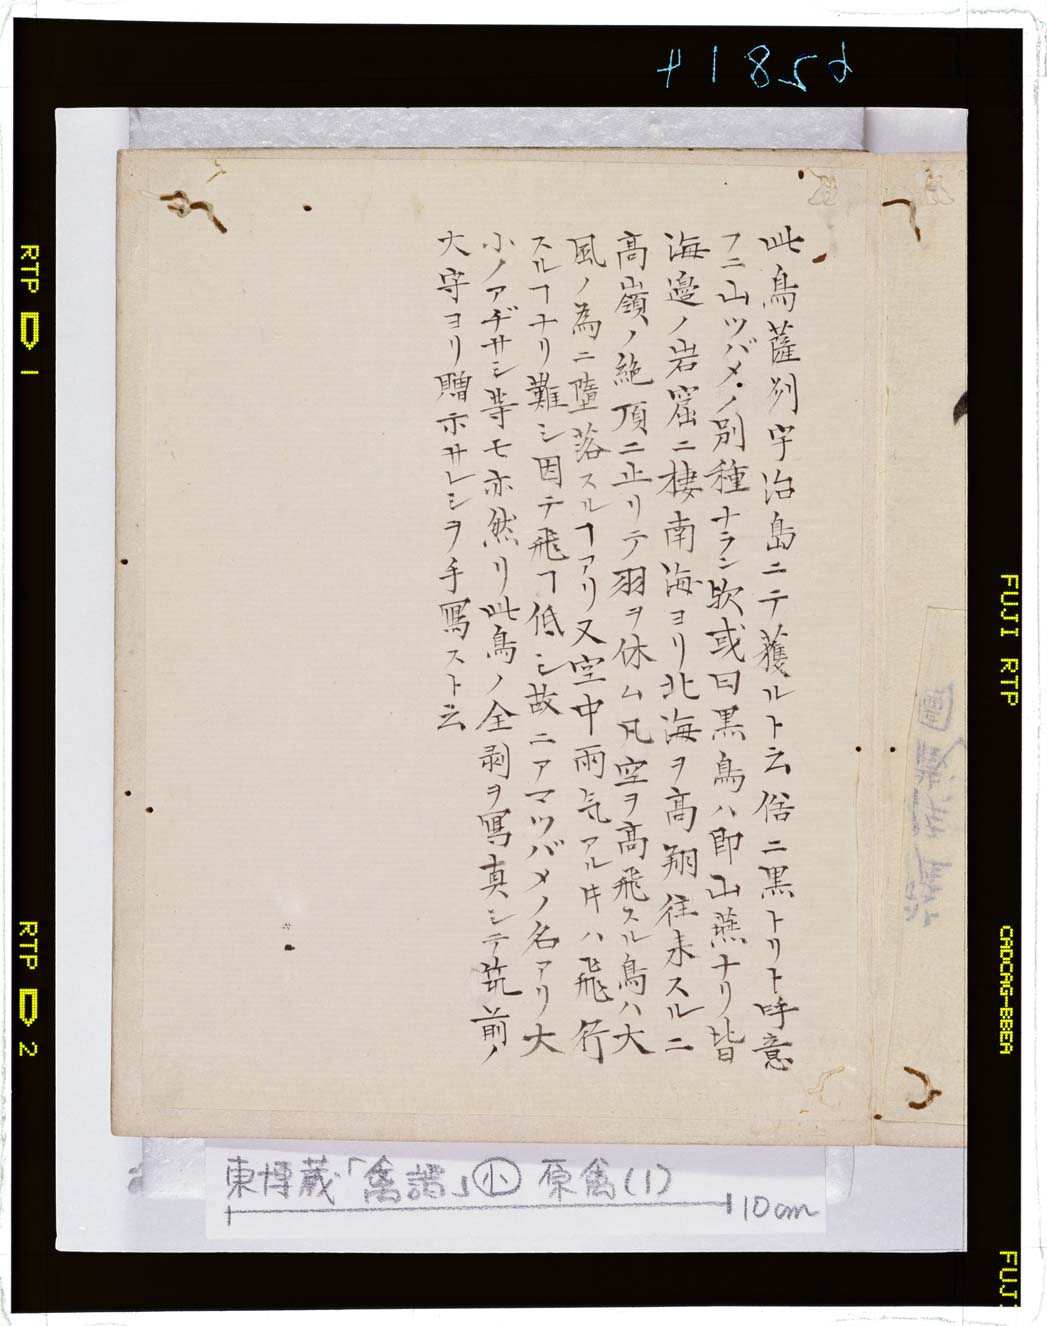 此鳥薩刕宇治島ニテ獲ルト云俗ニ黒トリト呼意
フニ山ツバメノ別種ナラン欤或曰黒鳥ハ即山燕ナリ皆
海邉ノ岩窟ニ棲南海ヨリ北海ヲ高翔往来スルニ
高嶺ノ絶頂ニ止リテ羽ヲ休ム凡空ヲ高飛スル鳥ハ大
風ノ為ニ墮落スルヿアリ又空中雨気アル井ハ飛行
スルヿナリ難シ因テ飛ヿ低シ故ニアマツバメノ名アリ大
小ノアヂサシ等モ亦然リ此鳥ノ全剥ヲ冩真シテ筑前ノ
大守ヨリ贈示サレシヲ手冩スト云
東博蔵「禽譜」小 原禽(1)
10cm
RTP 1
RTP 2
FUJI RTP
CADCAG-BBEA
FUJI